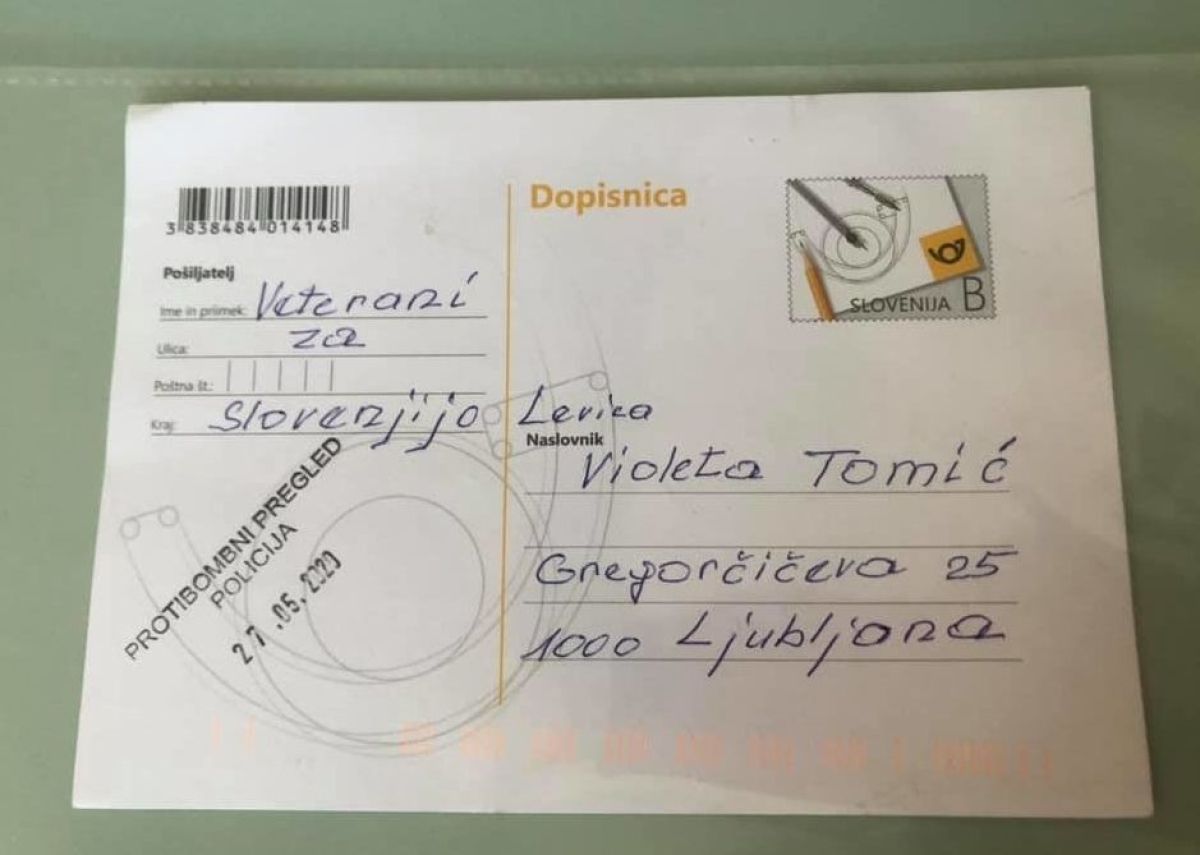 Dopisnica
3 838484 014148
Pošiljatelj
Ime in priimek: Veterani
Ulica: za
Poštna št.:
Kraj: Slovenjijo
SLOVENIJA B
Levica
Naslovnik
Violeta Tomić
Gregorčičeva 25
1000 Ljubljana
PROTIBOMBNI PREGLED
POLICIJA
27.05.2020